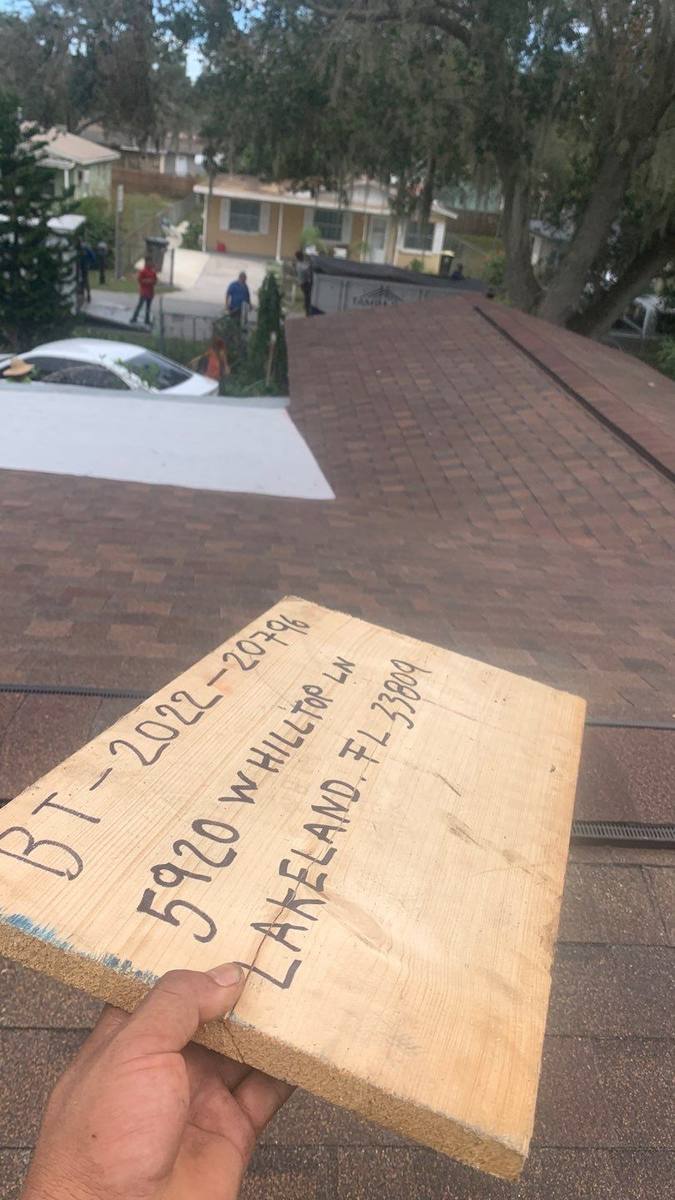 BT-2022-20796
5920 W HILLTOP LN
LAKELAND. FL 33809